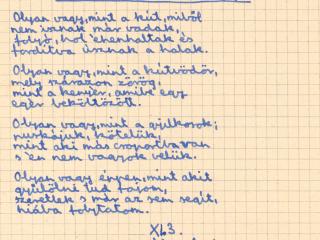 Olyan vagy, mint a kút, miből
nem isznak már vadak,
folyó, hol éhenhaltak és
fordítva úsznak a halak.
Olyan vagy, mint a kútvödör,
mely szárazon zörög,
mint a kenyér, amibe egy
egér beköltözött.
Olyan vagy, mint a gyilkosok;
nurkójuk, kötelük,
mint aki más csoportba van
s én nem vagyok velük.
Olyan vagy éppen, mint akit
gyűlölni tud fajom,
szeretlek s már az sem segít,
hiába folytatom.
XI.3.